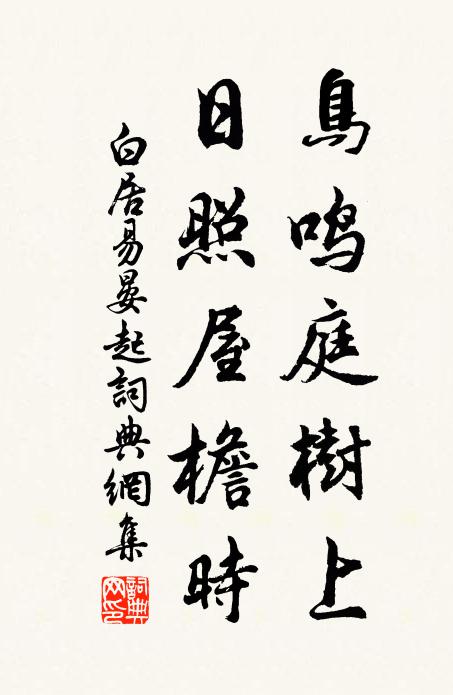 鳥鳴庭樹上
日照屋檐時
白居易晏起詞典網集
詞典網印